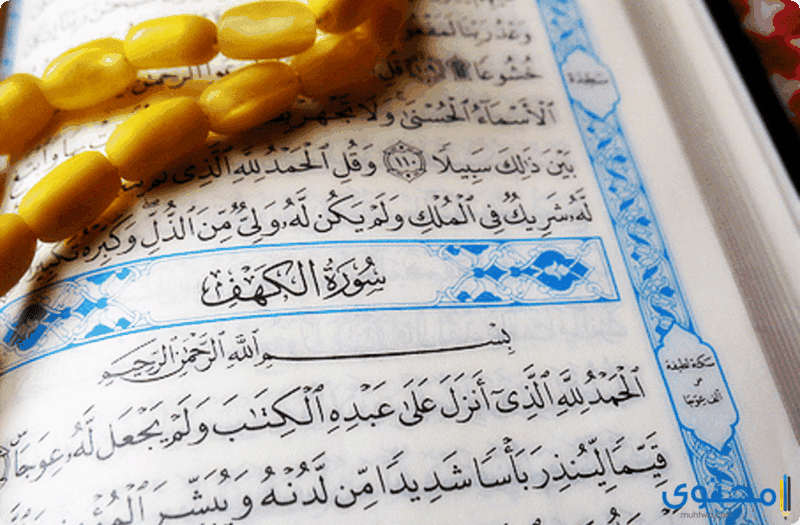 وَعْدُ رَبِّنَا لَمَفْعُولًا
خُشُوعًا ۩ قُلِ ٱدْعُوا۟ ٱلرَّحْمَٰنَ
ٱلْأَسْمَآءُ ٱلْحُسْنَىٰ وَلَا تَجْهَرْ
بَيْنَ ذَٰلِكَ سَبِيلًا ١١٠ وَقُلِ ٱلْحَمْدُ لِلَّهِ ٱلَّذِى لَمْ
لَّهُۥ شَرِيكٌ فِى ٱلْمُلْكِ وَلَمْ يَكُن لَّهُۥ وَلِىٌّ مِّنَ ٱلذُّلِّ وَكَبِّرْهُ تَكْبِيرًا
سُورَةُ الكَهْفِ
بِسْمِ ٱللَّهِ ٱلرَّحْمَٰنِ ٱلرَّحِيمِ
ٱلْحَمْدُ لِلَّهِ ٱلَّذِىٓ أَنزَلَ عَلَىٰ عَبْدِهِ ٱلْكِتَٰبَ وَلَمْ يَجْعَل لَّهُۥ عِوَجَا
قَيِّمًا لِّيُنذِرَ بَأْسًا شَدِيدًا مِّن لَّدُنْهُ وَيُبَشِّرَ ٱلْمُؤْمِنِينَ
سَجْدَة
سكتة لطيفة
على
ألف عِوَجَا
محتوى
muhtwa.com